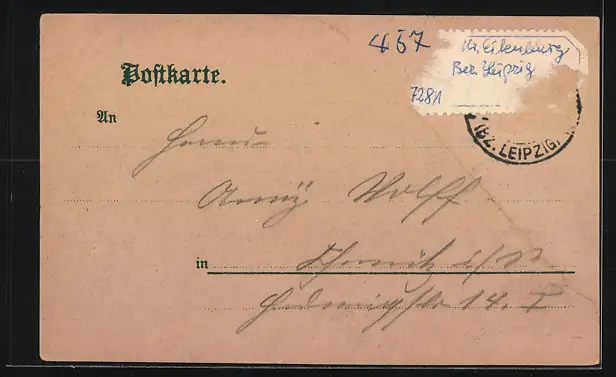 457
Kr. Eilenburg
Bez. Leipzig
7281
Postkarte.
(BZ. LEIPZIG)
An
Herrn
Wolff
in Chemnitz i/S
Hedwigstr 14. I